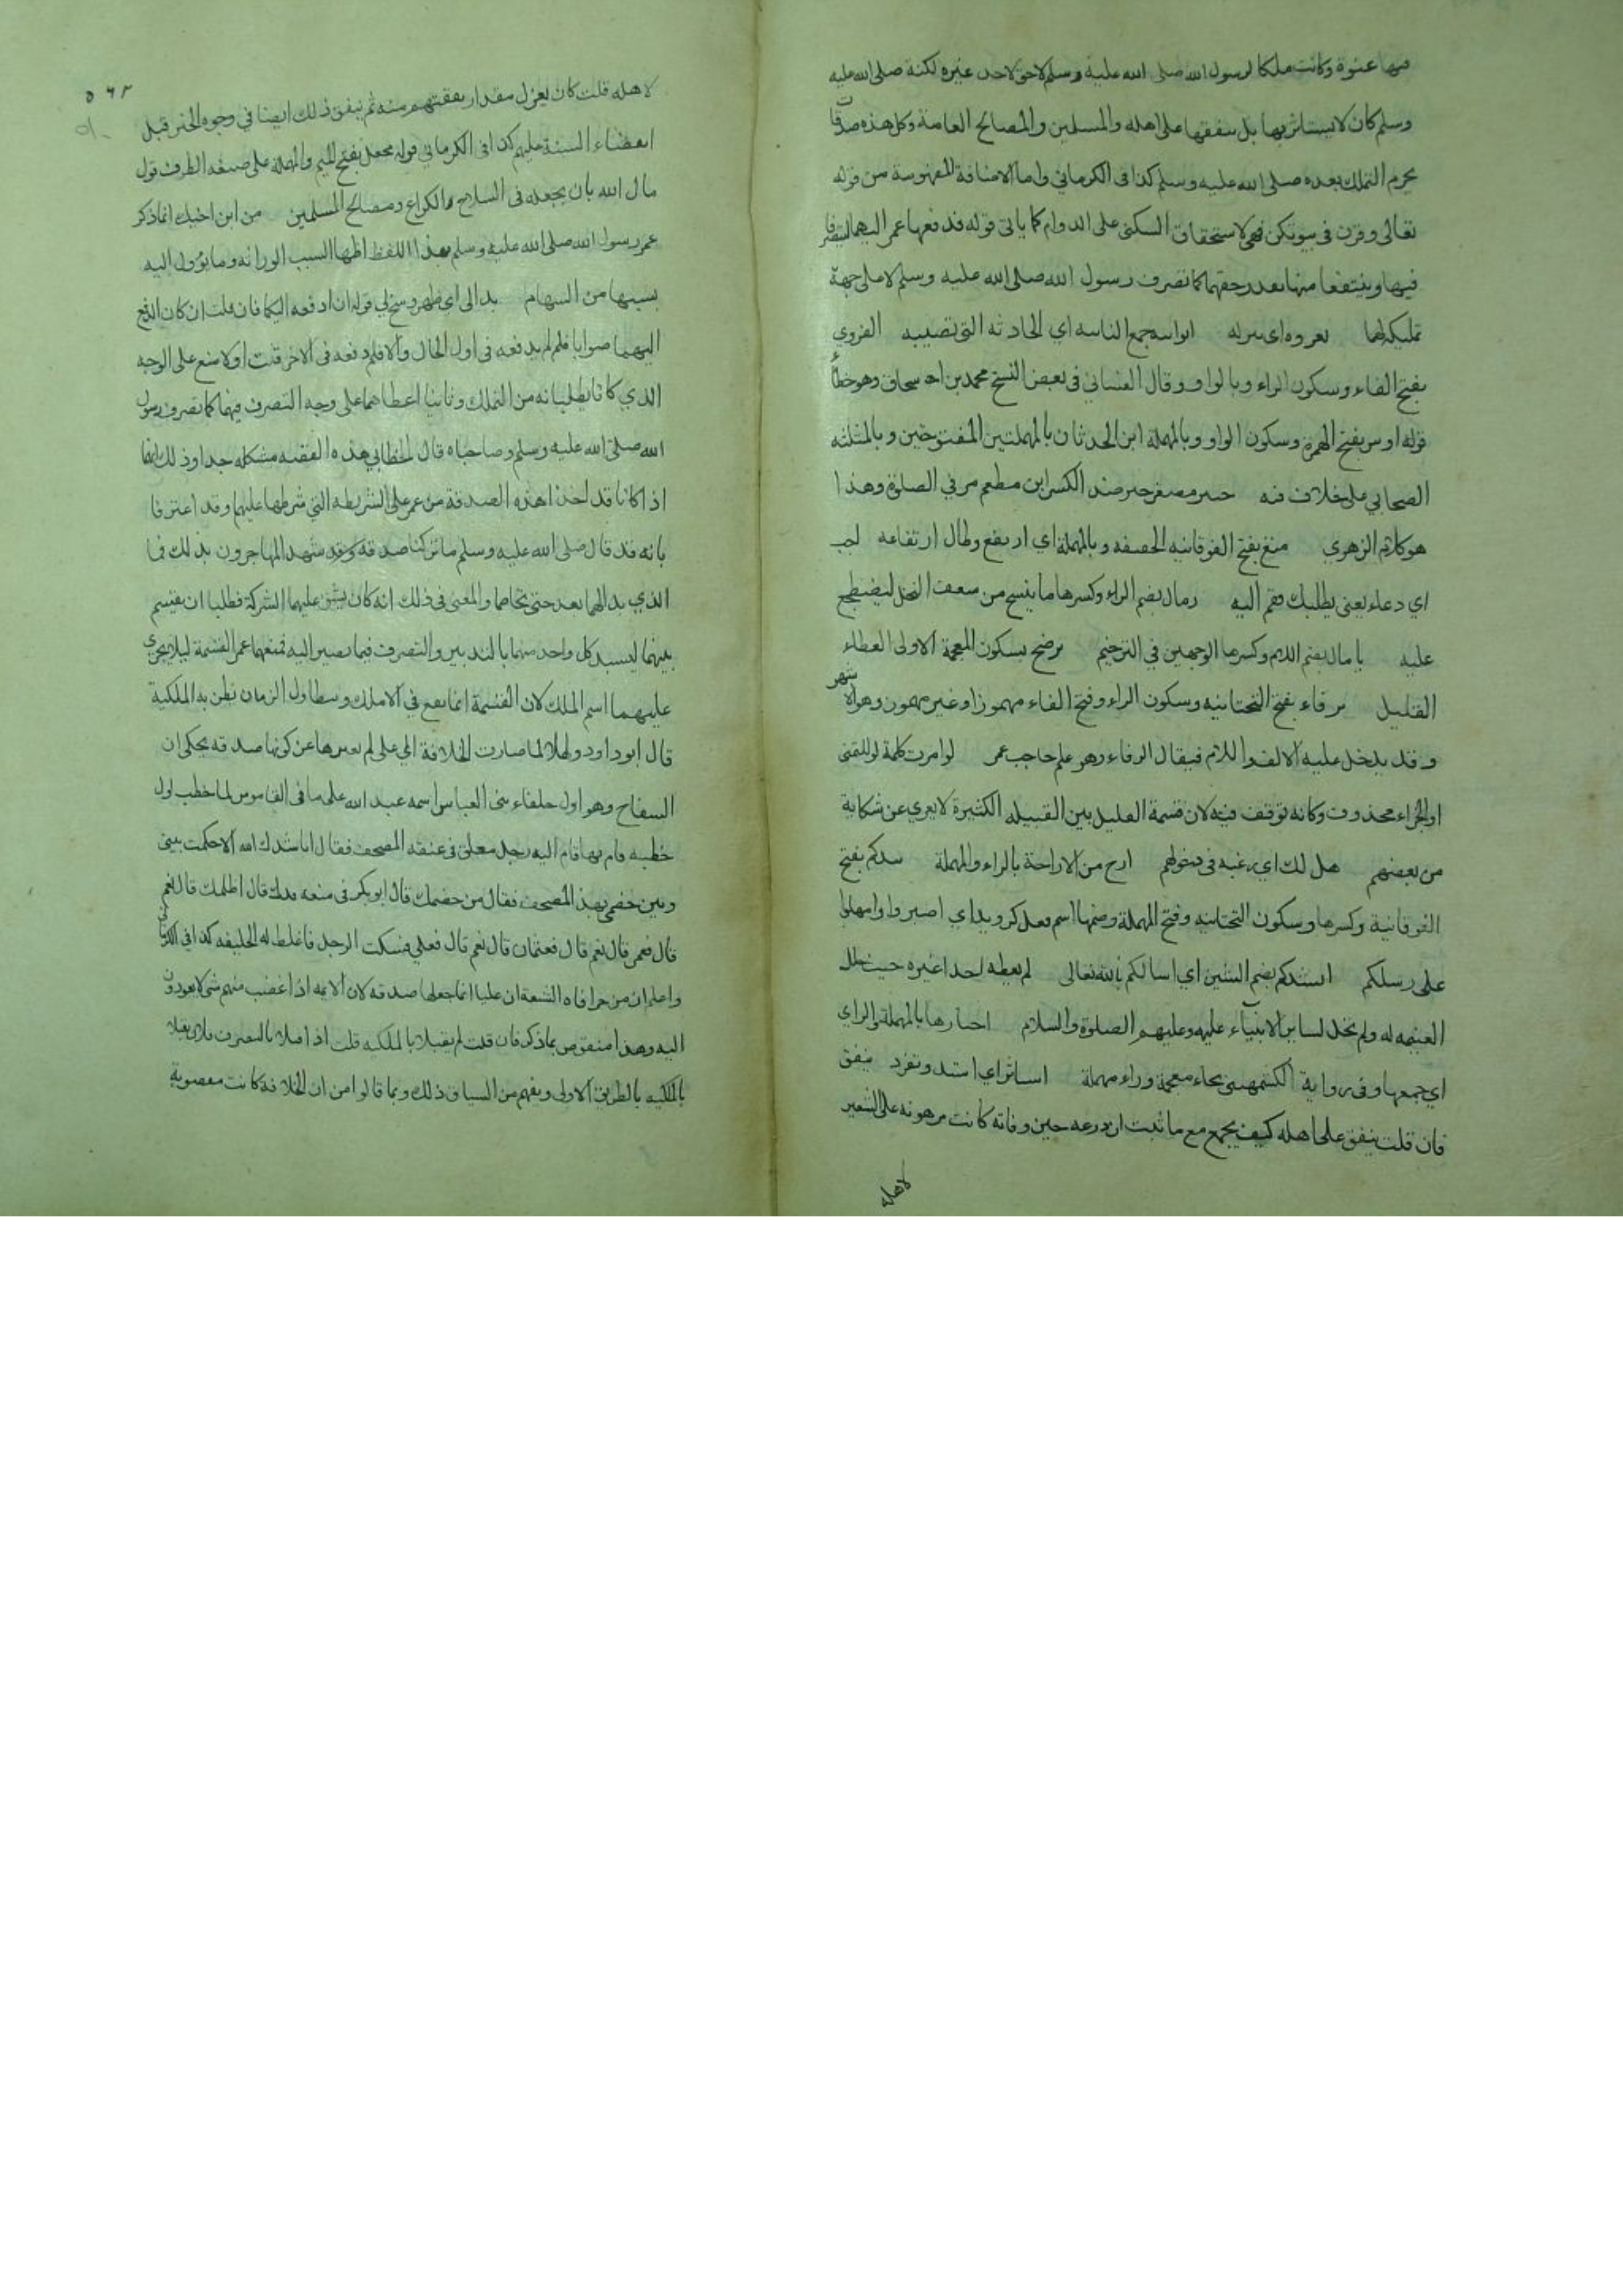 فيها عنوة وكانت ملكا لرسول الله صلى الله عليه وسلم لا حق لاحد غيره لكنه صلى الله عليه
وسلم كان لا يستاثر بها بل ينفقها على اهله والمسلمين والمصالح العامة وكل هذه صدقات
يحرم التملك بعده صلى الله عليه وسلم كذا فى الكرماني واما الاضافة المفهومة من قوله
تعالى وقرن فى بيوتكن فهى لاستحقاق السكنى على الدوام كما ياتى قوله فدفعها عمر اليهما ليتصرفا
فيها وينتفعا منها بقدر حقهما كما تصرف رسول الله صلى الله عليه وسلم لا على جهة
تمليكه لهما تعروه اى تنزله نوائبه جمع النائبه اي الحادثه التى تصيبه الفروي
بفتح الفاء وسكون الراء وبالواو وقال الغسانى فى بعض النسخ محمد بن اسحاق وهو خطأ
قوله اوس بفتح الهمزة وسكون الواو وبالمهملة ابن الحدثان بالمهملتين المفتوحتين وبالمثلثه
الصحابي على خلاف فيه جبير مصغر جبر ضد الكسر ابن مطعم مر في الصلوة وهذا
هو كلام الزهري متع بفتح الفوقانيه الخفيفه وبالمهملة اي ارتفع وطال ارتفاعه اجب
اي دعاء يعنى يطلبك فقم اليه رمال بضم الراء وكسرها ما ينسج من سعف النخل ليضطجع
عليه يا مال بضم اللام وكسرها الوجهين في الترخيم برضخ بسكون المعجمة الاولى العطاء
القليل يرفاء بفتح التحتانيه وسكون الراء وفتح الفاء مهموزا وغير مهموز وهو الاشهر
وقد يدخل عليه الالف واللام فيقال اليرفاء وهو علم حاجب عمر لو امرت كلمة لو للتمنى
او الجزاء محذوف وكانه توقف فيه لان قسمة القليل بين القبيله الكثيرة لا يعري عن شكاية
من بعضهم هل لك اي رغبه فى دخولهم ارح من الاراحة بالراء والمهملة تيدكم بفتح
الفوقانية وكسرها وسكون التحتانيه وفتح المهملة وضمها اسم فعل كرويدا اي اصبروا وامهلوا
على رسلكم انشدكم بضم الشين اي اسالكم بالله تعالى لم يعطه احدا غيره حيث حلل
الغنيمه له ولم تحل لساير الانبياء عليه وعليهم الصلوة والسلام احتازها بالمهملة والزاي
اي جمعها وفى رواية الكشميهنى بخاء معجمة وراء مهملة استاثر اي استبد وتفرد ينفق
فان قلت ينفق على اهله كيف يجمع مع ما ثبت ان درعه حين وفاته كانت مرهونه على الشعير
لاهله
٥٦٢
لاهله قلت كان يعزل مقدار نفقتهم منه ثم ينفق ذلك ايضا في وجوه الخير قبل
انقضاء السنة عليهم كذا فى الكرماني قوله مجعل بفتح الميم والمهملة على صيغه الظرف قول
مال الله بان يجعله فى السلاح والكراع ومصالح المسلمين من ابن اخيك انما ذكر
عمر رسول الله صلى الله عليه وسلم بهذا اللفظ اظهارا لسبب الوراثه وما يؤول اليه
بسببها من السهام بدا لى اي ظهر وسنح لي قوله ان ادفعه اليكما فان قلت ان كان الدفع
اليهما صوابا فلم لم يدفعه فى اول الحال والا فلم دفعه فى الاخر قلت اولا منع على الوجه
الذي كانا يطلبانه من التملك وثانيا اعطاهما على وجه التصرف فيها كما تصرف رسول
الله صلى الله عليه وسلم وصاحباه قال الخطابي هذه القصة مشكله جدا وذلك بانهما
اذا كانا قد اخذا هذه الصدقة من عمر على الشريطه التي شرطها عليهما وقد اعترفا
بانه قد قال صلى الله عليه وسلم ما تركنا صدقه وقد شهد المهاجرون بذلك فما
الذي بدا لهما بعد حتى تخاصما والمعنى فى ذلك انه كان يشق عليهما الشركة فطلبا ان يقسم
بينهما ليستبد كل واحد منهما بالتدبير والتصرف فيما يصير اليه فمنعهما عمر القسمة ليلا يجري
عليهما اسم الملك لان القسمة انما يقع في الاملاك ويتطاول الزمان يظن به الملكية
قال ابو داود ولهذا لما صارت الخلافة الى على لم يغيرها عن كونها صدقه يحكى ان
السفاح وهو اول خلفاء بنى العباس اسمه عبد الله على ما فى القاموس لما خطب اول
خطبه قام بها قام اليه رجل معلق فى عنقه المصحف فقال اناشدك الله الا حكمت بينى
وبين خصمى بهذا المصحف فقال من خصمك قال ابو بكر فى منعه فدك قال اظلمك قال نعم
قال فعمر قال نعم قال فعثمان قال نعم قال فعلي فسكت الرجل فاغلظ له الخليفه كذا في الكرماني
واعلم ان من خرافات الشيعة ان عليا انما جعلها صدقه لان الائمه اذا غضب منهم شى لا يعودون
اليه وهذا منقوض بما ذكر فان قلت لم يقبلا بالملكيه قلت اذا قبلا بالتصرف فلان يقبلا
بالملكيه بالطريق الاولى ويفهم من السياق ذلك وبما قالوا من ان الخلافة كانت مغصوبة